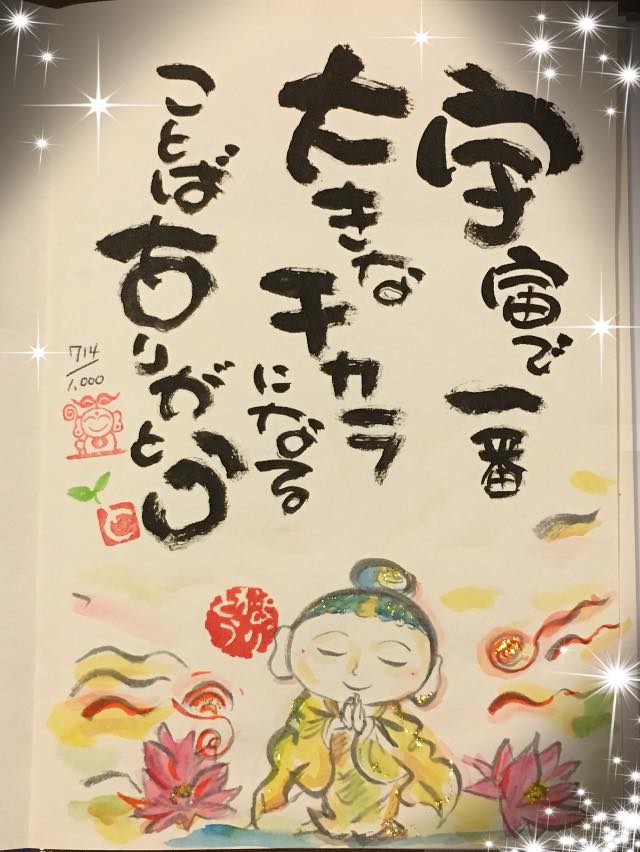 宇宙で一番
大きなチカラになる
ことばありがとう
714/1,000
ありがとう